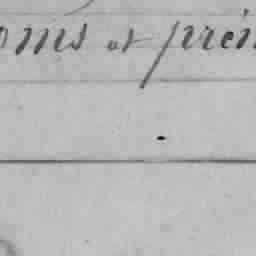 oms et prén